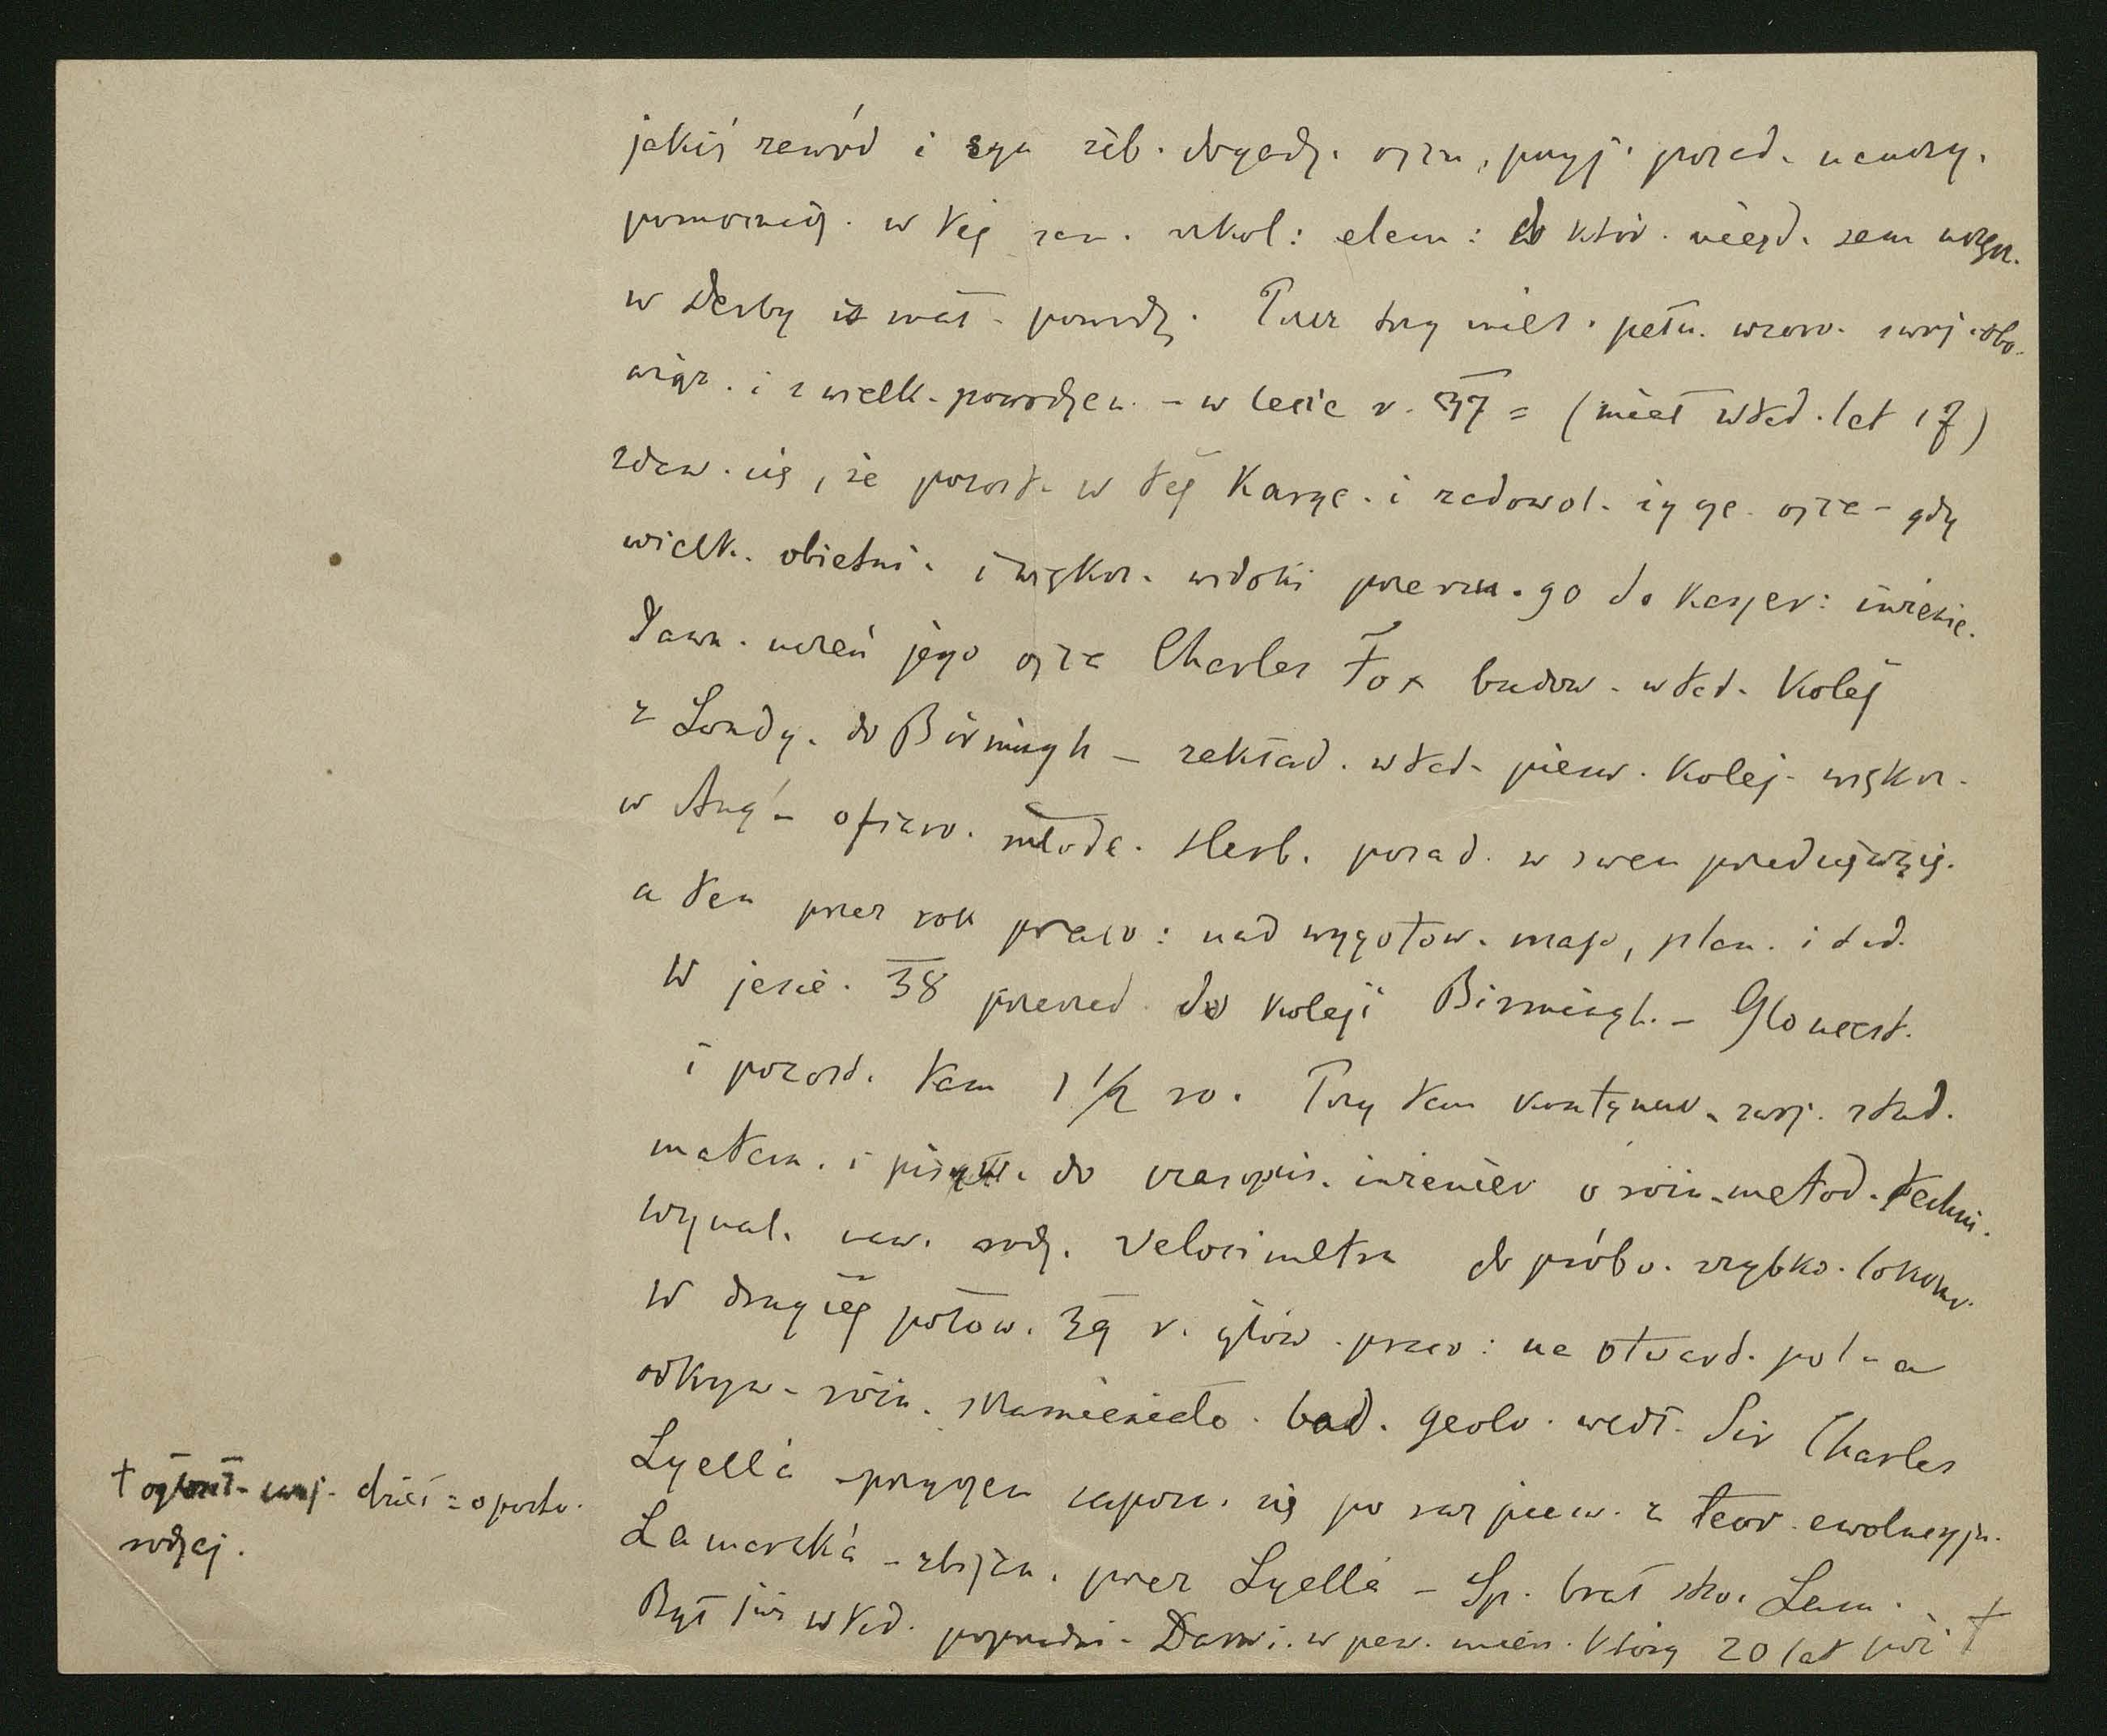 jakiś zawód i syn zib. dogadz. ojcu, przyj. posad. nauczy.
pomocnicz. w tej sam. szkol: elem: do któr. niegd. sam uczęn.
w Derby w mał. powodz. Przez trzy mies. pełn. wzoro. swój. obo-
wiąz. i z wielk. powodzen. – w lecie r. 37 = (miał wted. lat 17)
zdaw. się, że pozost. w tej karye. i zadowol. życze. ojca – gdy
wielk. obietni. i większ. widoki przerzu. go do karyer: inżenie.
Dawn. uczeń jego ojca Charles Fox budow. wted. kolej
z Londy. do Birmingh – zakład. wted. pierw. kolej. większ.
w Ang. – ofiaro. młode. Herb. posad. w swem przedsięwzię.
a ten przez rok praco: nad wygotow. map, plan. i t.d.
W jesie. 38 przeszed. do koleji Birmingh. – Gloucest.
i pozost. tam 1 1/2 ro. Przy tem kontynuo. swoj. stud.
matem. i pisyw. do czasopis. inżenier o różn. metod. techni.
wynal. now. rodz. velocimetru do próbo. szybko. lokomo.
W drugiej połow. 39 r. głów. praco: na otward. pol – a
odkryw. różn. skamieniało. bad. geolo. wedł. Sir Charles
Lyell'a – przyczem zapozn. się po raz pierw. z teor. ewolucyjn.
Lamarck'a – zbijan. przez Lyell'a – Sp. brał stro. Lam.
Był już wted. poprzedni. Darwi. w pew. mier. który 20 lat póź †
† ogłosił swoj. dzieł = o powsta.
rodzaj.